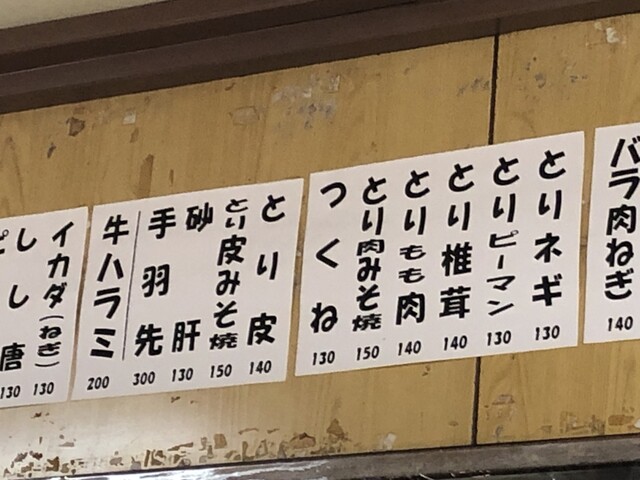 バラ肉ねぎ 140
とりネギ 130
とりピーマン 130
とり椎茸 140
とりもも肉 140
とり肉みそ焼 150
つくね 130
とり皮 140
とり皮みそ焼 150
砂肝 130
手羽先 300
牛ハラミ 200
イカダ(ねぎ) 130
しし唐 130